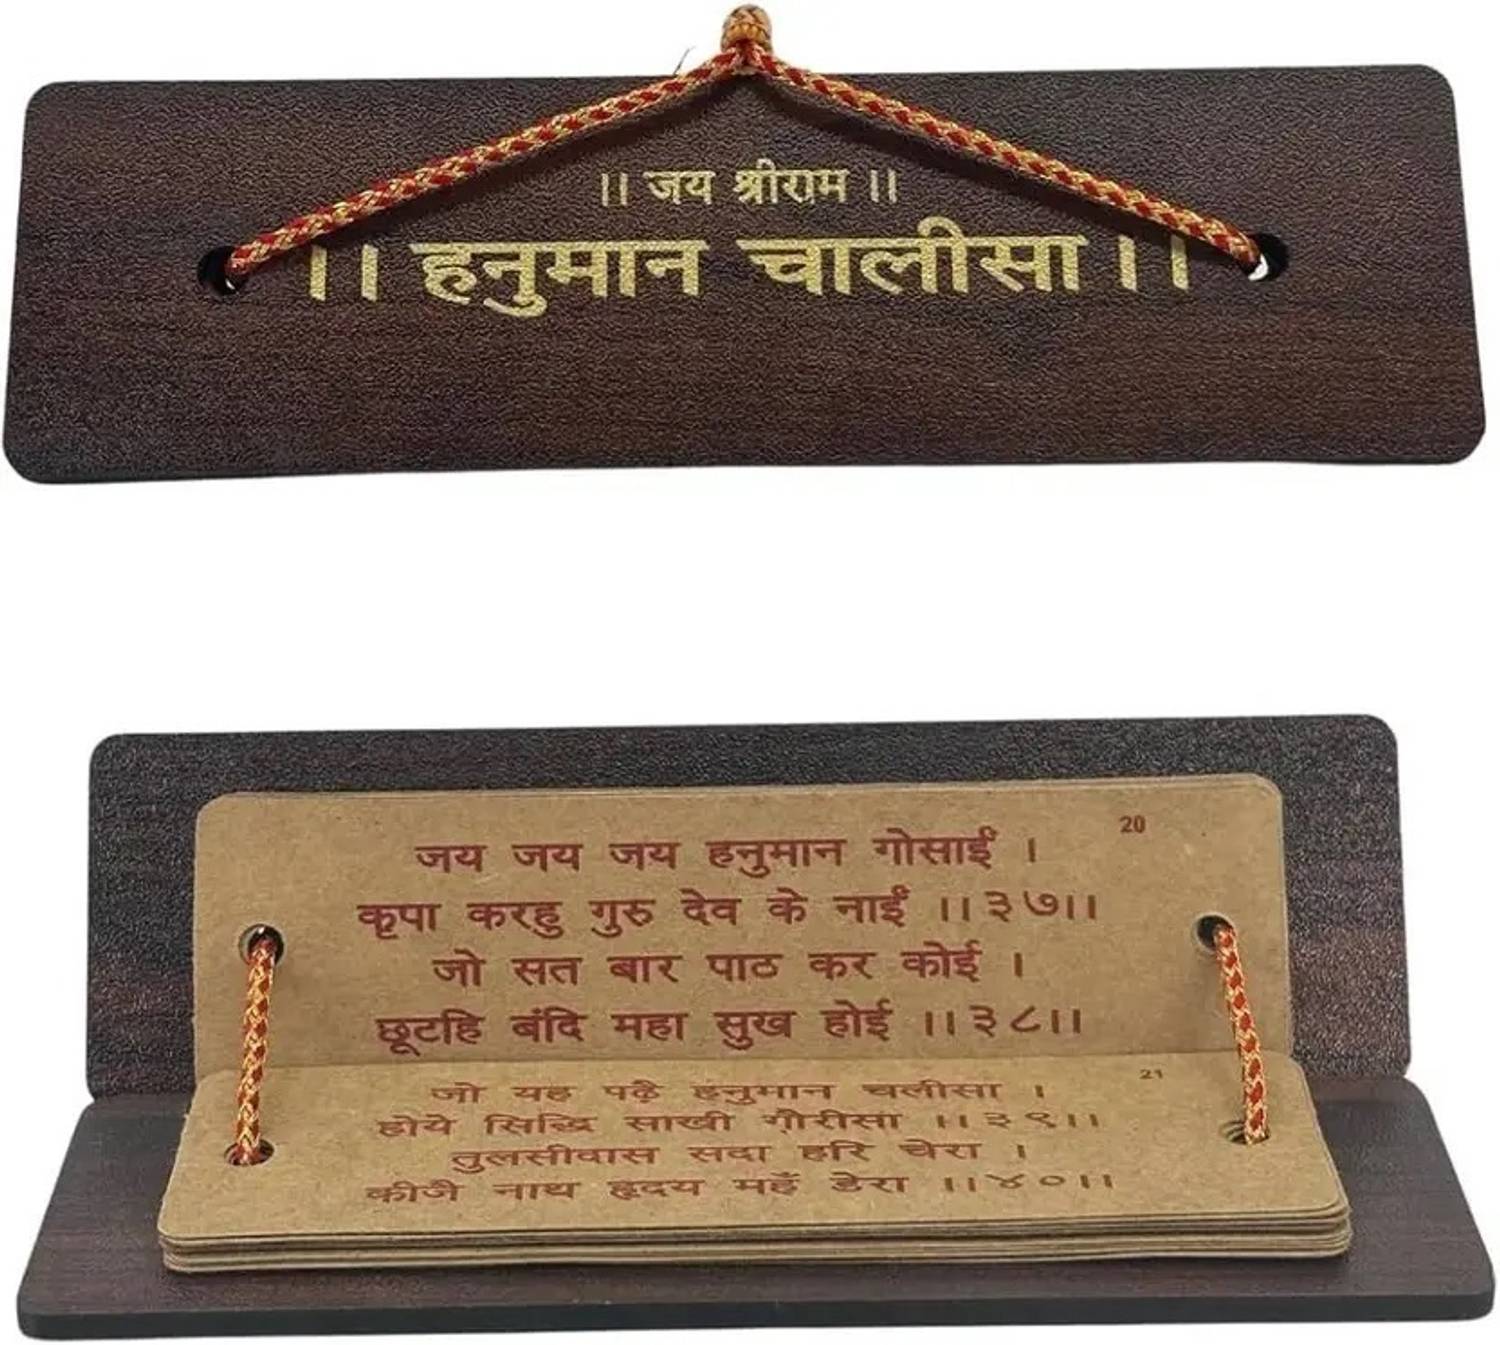 ।। जय श्रीराम ।।
।। हनुमान चालीसा ।।
20
जय जय जय हनुमान गोसाईं ।
कृपा करहु गुरु देव के नाईं ।।३७।।
जो सत बार पाठ कर कोई ।
छूटहि बंदि महा सुख होई ।।३८।।
21
जो यह पढ़ै हनुमान चलीसा ।
होये सिद्धि साखी गौरीसा ।।३९।।
तुलसीदास सदा हरि चेरा ।
कीजै नाथ हृदय महँ डेरा ।।४०।।